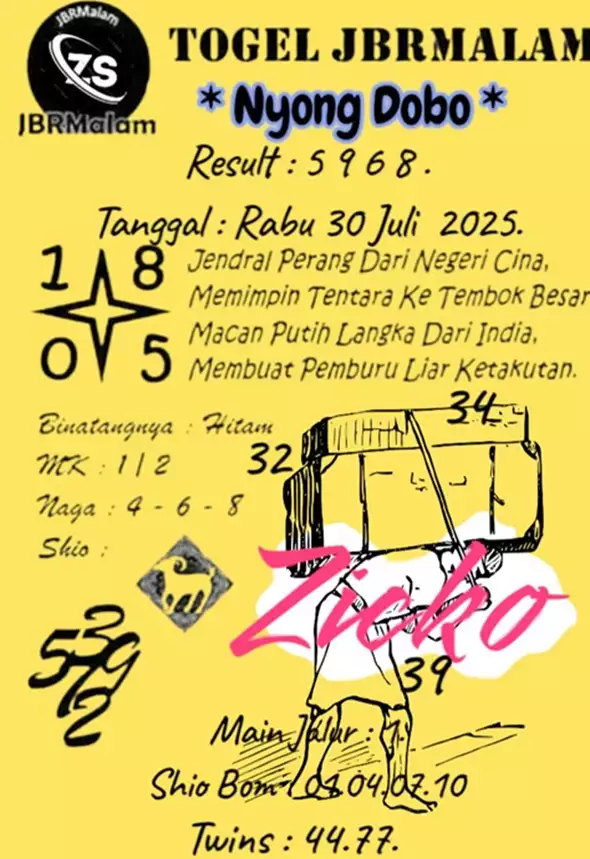 JBRMalam
ZS
JBRMalam
TOGEL JBRMALAM
* Nyong Dobo *
Result : 5 9 6 8 .
Tanggal : Rabu 30 Juli 2025.
1 8
0 5
Jendral Perang Dari Negeri Cina,
Memimpin Tentara Ke Tembok Besar
Macan Putih Langka Dari India,
Membuat Pemburu Liar Ketakutan.
Binatangnya : Hitam
MK : 1 / 2
Naga : 4 - 6 - 8
Shio :
34
32
Zieko
39
Main Jalur : 1.
Shio Bom : 01.04.07.10
Twins : 44.77.